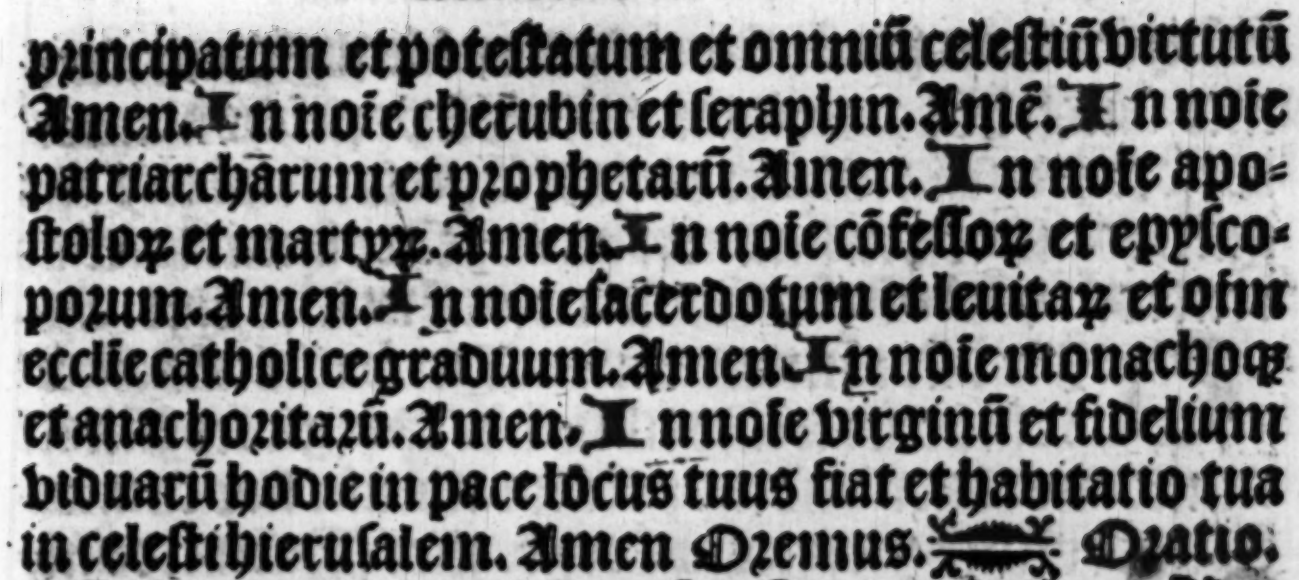 principatum et potestatum et omniū celestiū virtutū
Amen. In noīe cherubin et seraphin. Amē. In noīe
patriarcharum et prophetarū. Amen. In noīe apo⸗
stoloꝝ et martyꝝ. Amen. In noīe cōfessoꝝ et epysco⸗
porum. Amen. In noīe sacerdotum et leuitaꝝ et oīm
ecclīe catholice graduum. Amen. In noīe monachoꝝ
et anachoritarū. Amen. In noīe virginū et fidelium
viduarū hodie in pace locus tuus fiat et habitatio tua
in celesti hierusalem. Amen Oremus. Oratio.